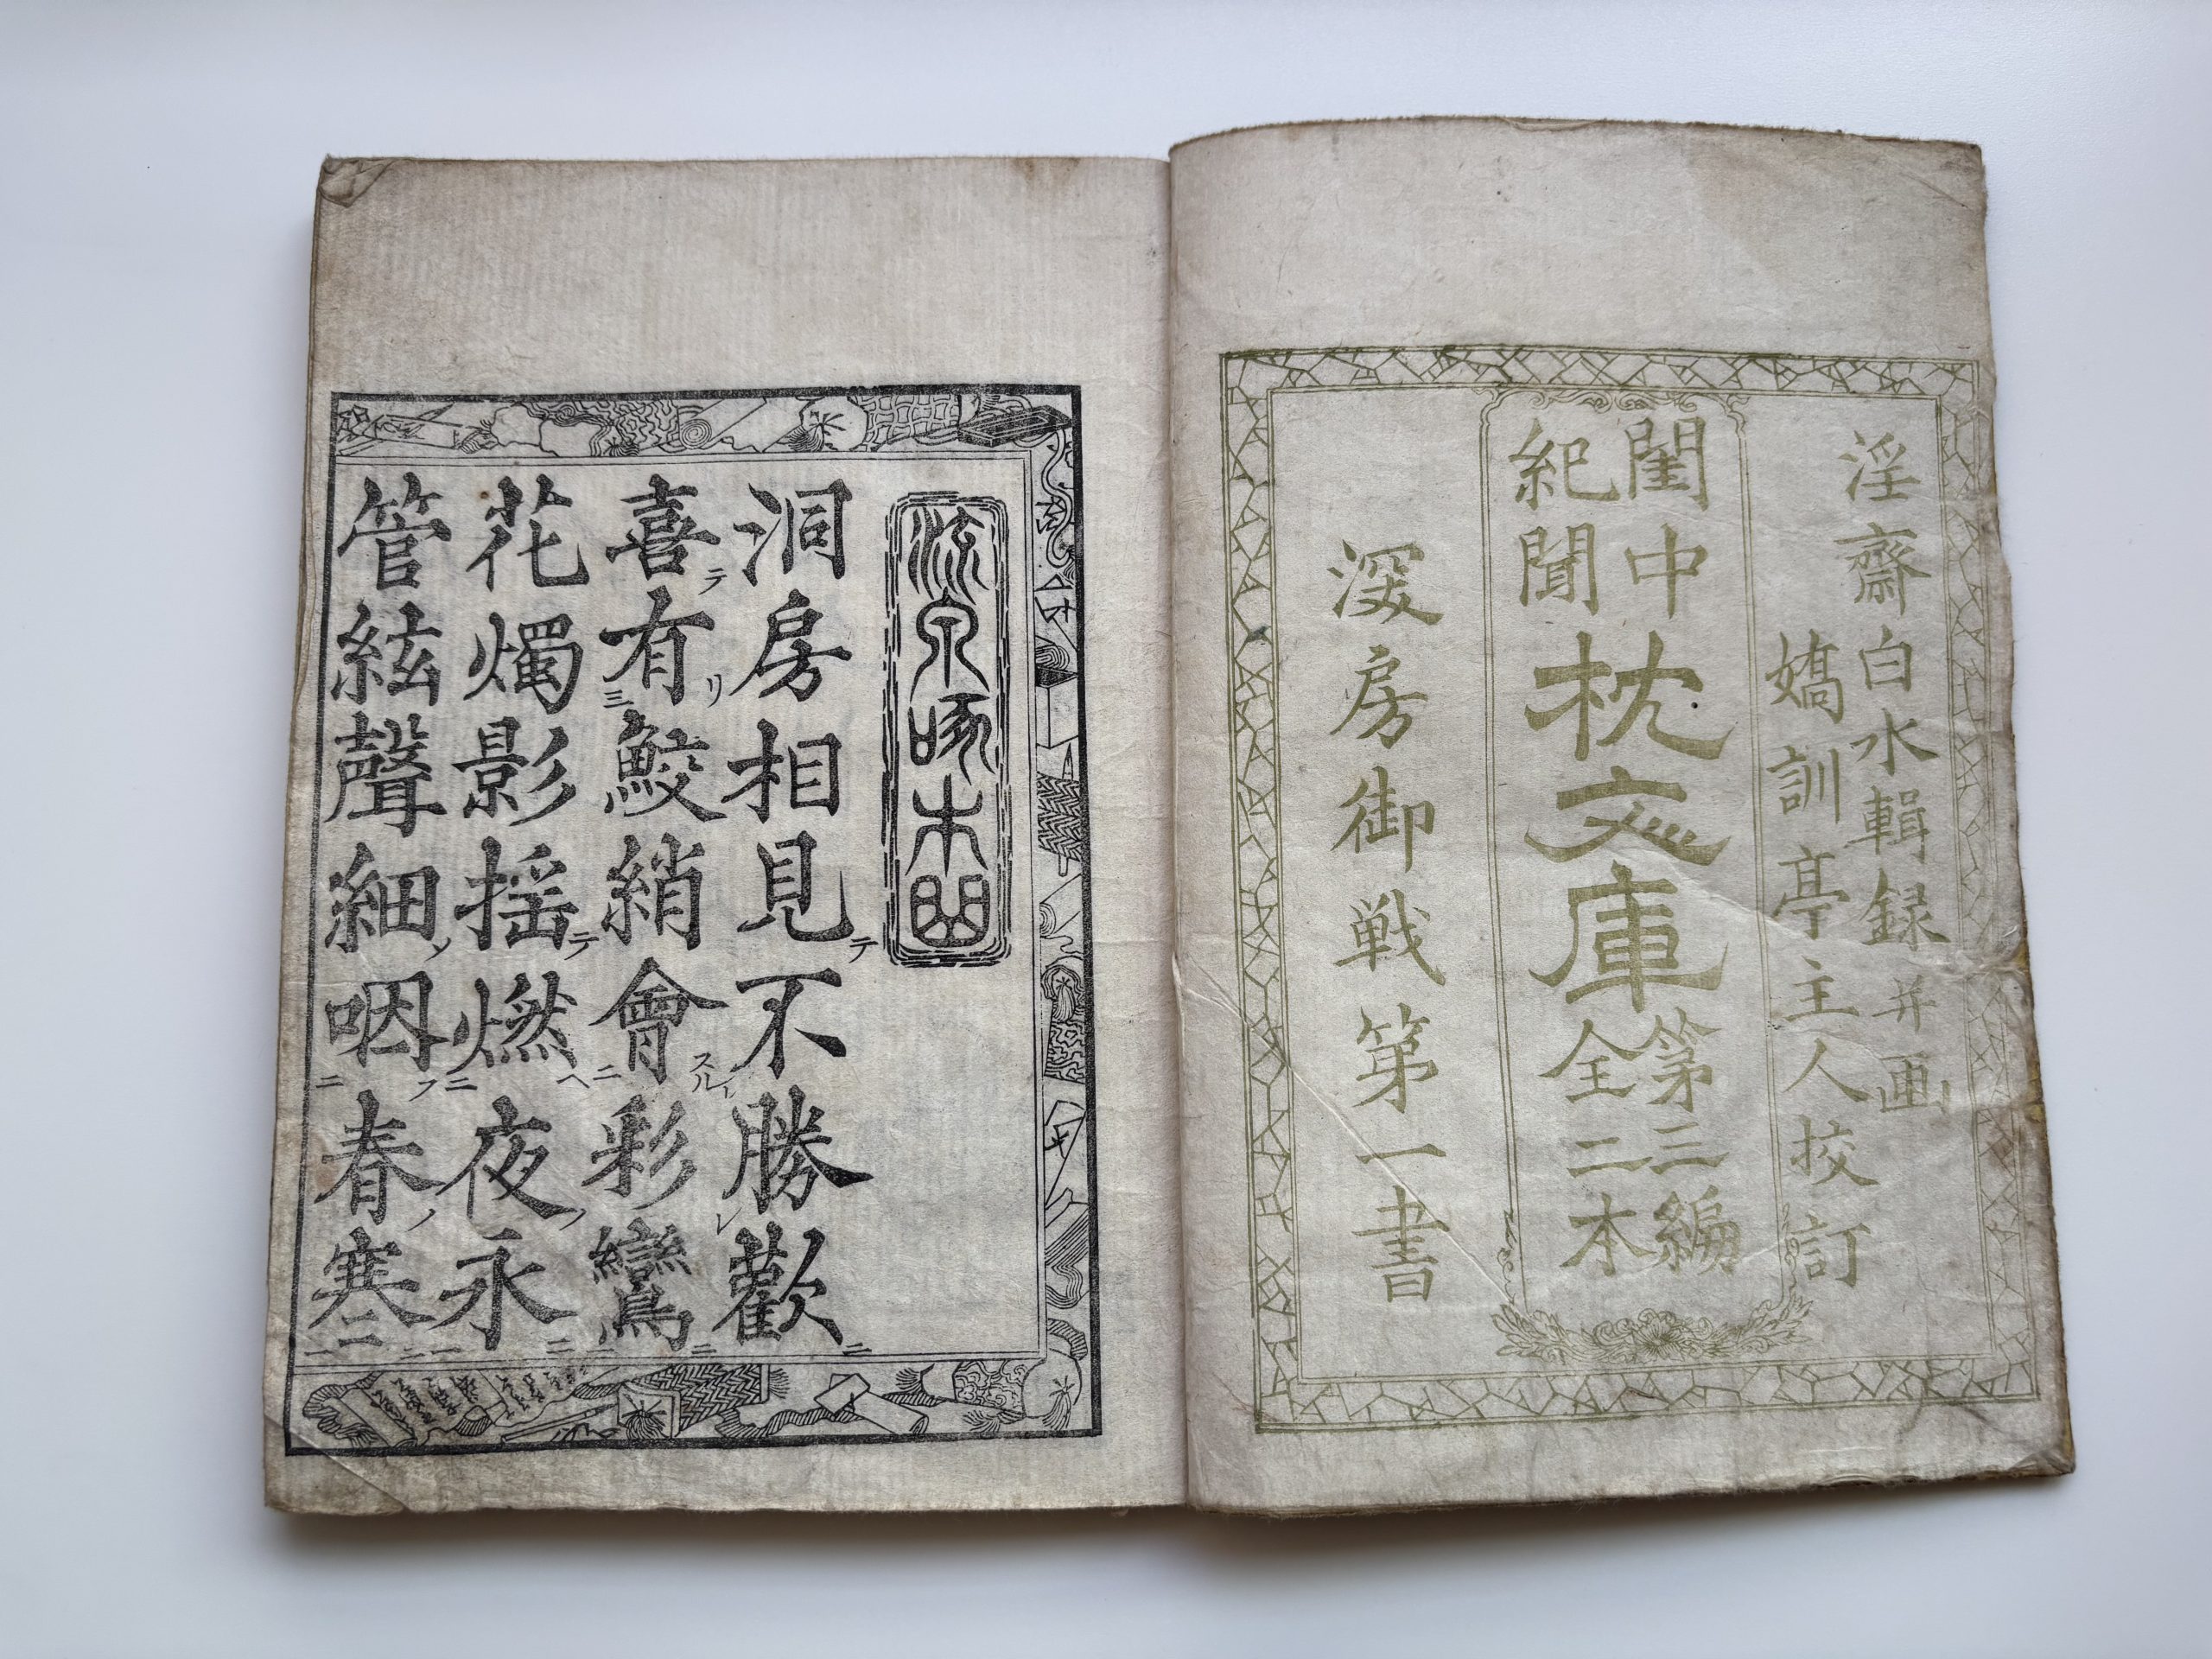 淫齋白水輯録并画
嬌訓亭主人挍訂
閨中
紀聞
枕文庫
第三編
全二本
深房御戦第一書
流泉啄木
洞房相見不勝歡
喜有鮫綃會彩鸞
花燭影揺燃夜永
管絃聲細咽春寒